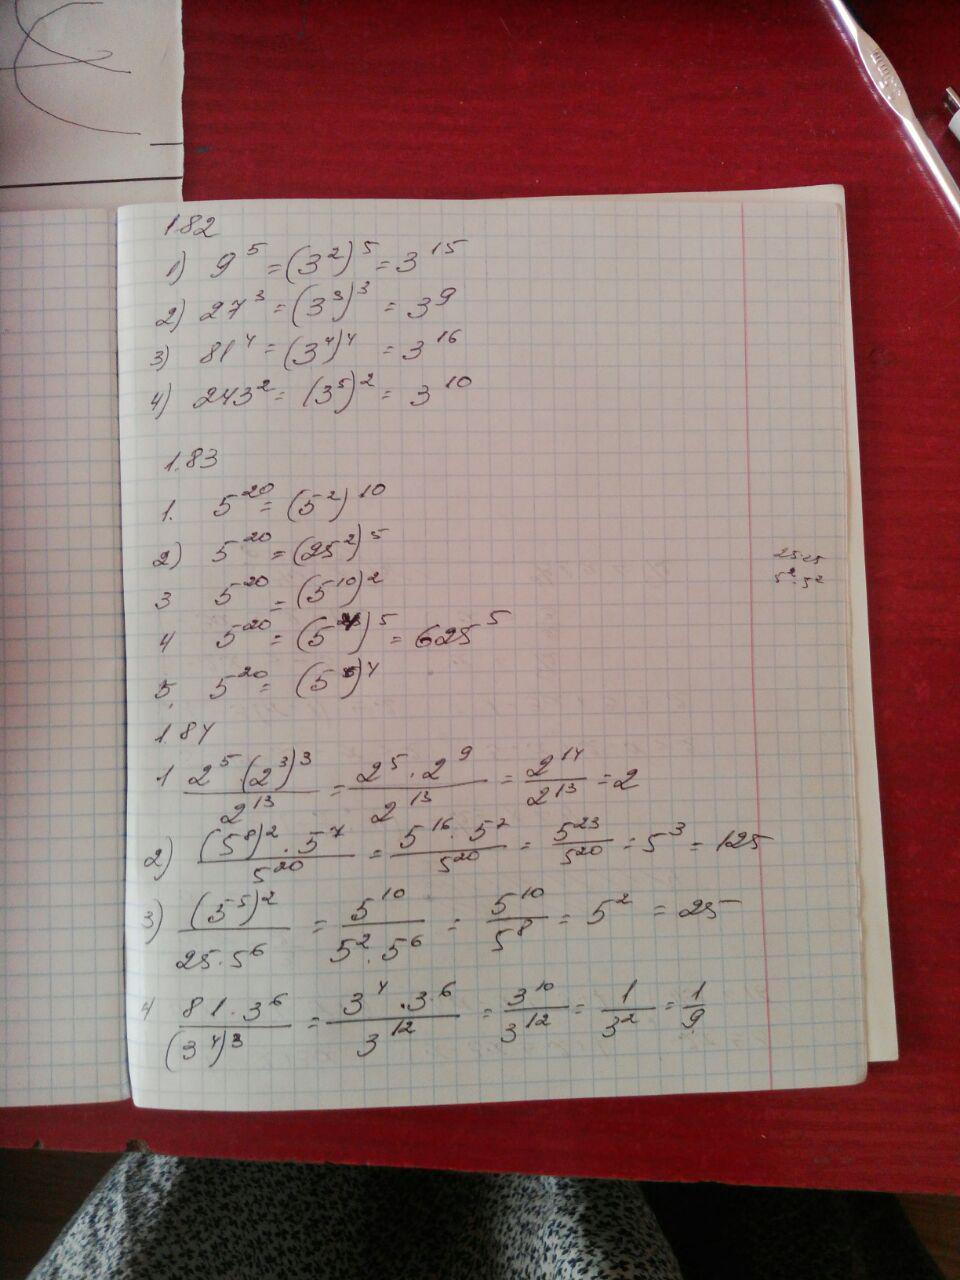 1.82
1) 9^5 = (3^2)^5 = 3^15
2) 27^3 = (3^3)^3 = 3^9
3) 81^4 = (3^4)^4 = 3^16
4) 243^2 = (3^5)^2 = 3^10
1.83
1. 5^20 = (5^2)^10
2) 5^20 = (25^2)^5
25·25
5^2·5^2
3 5^20 = (5^10)^2
4 5^20 = (5^4)^5 = 625^5
5. 5^20 = (5^5)^4
1.84
1 (2^5·(2^3)^3)/2^13 = (2^5·2^9)/2^13 = 2^14/2^13 = 2
2) ((5^8)^2·5^7)/5^20 = (5^16·5^7)/5^20 = 5^23/5^20 = 5^3 = 125
3) (5^5)^2/(25·5^6) = 5^10/(5^2·5^6) = 5^10/5^8 = 5^2 = 25
4 (81·3^6)/(3^4)^3 = (3^4·3^6)/3^12 = 3^10/3^12 = 1/3^2 = 1/9